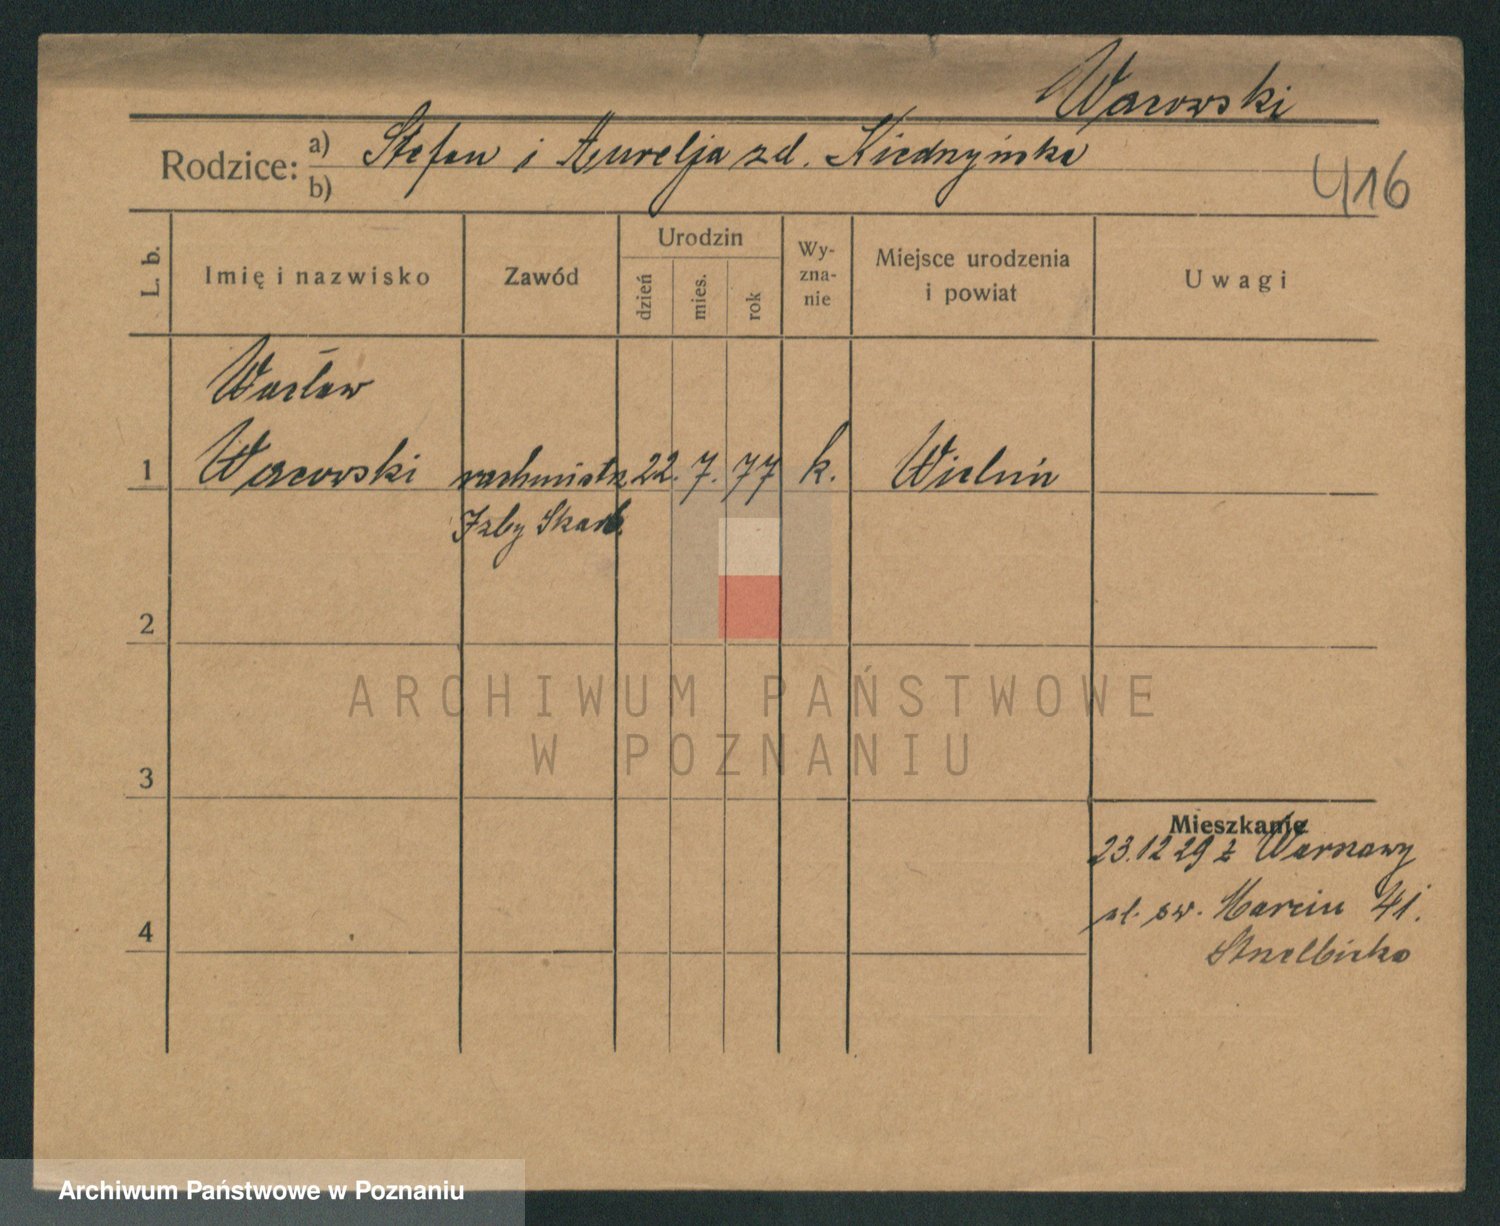 Wacowski
Rodzice: a) Stefan i Aurelja zd. Kiedrzyńska
b)
416
L. b.
Imię i nazwisko
Zawód
Urodzin
dzień
mies.
rok
Wy-
zna-
nie
Miejsce urodzenia
i powiat
Uwagi
Wacław
1 Wacowski rachmistrz 22. 7. 77 k. Wieluń
Izby Skarb.
2
ARCHIWUM PAŃSTWOWE
W POZNANIU
3
Mieszkanie
23.12 29 z Warszawy
4
ul. św. Marcin 41.
Strzelbicka
Archiwum Państwowe w Poznaniu